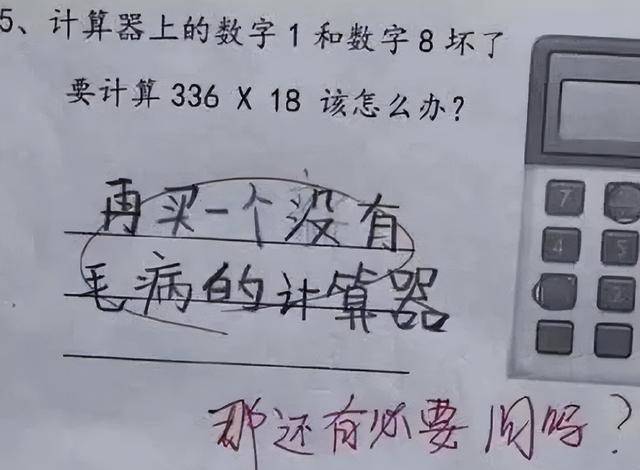 5、计算器上的数字1和数字8坏了
要计算336 X 18 该怎么办?
再买一个没有
毛病的计算器
那还有必要问吗?
7
4
5
2